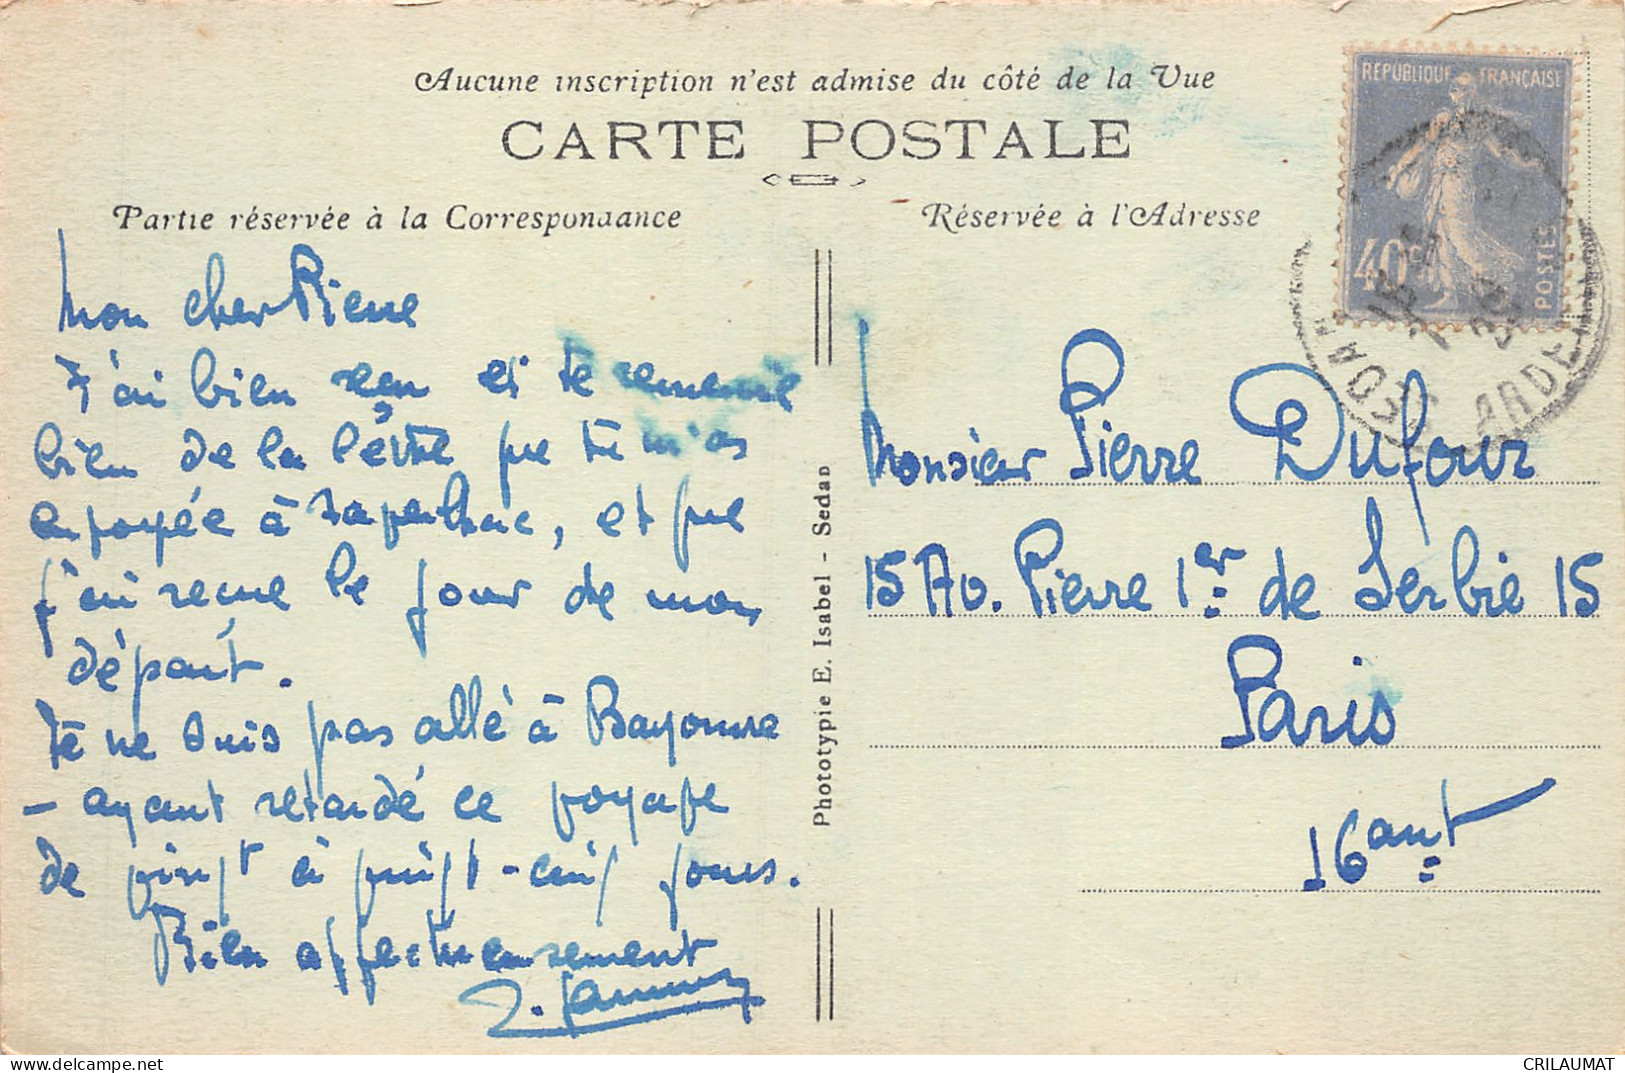 Aucune inscription n'est admise du côté de la Vue
CARTE POSTALE
Partie réservée à la Correspondance
Réservée à l'Adresse
REPUBLIQUE FRANÇAISE
40c
POSTES
SEDAN
ARDENNES
Mon cher Pierre
J'ai bien reçu et te remercie
bien de la lettre que tu m'as
envoyée à, et que
j'ai reçue le jour de mon
départ.
Je ne suis pas allé à Bayonne
- ayant retardé ce voyage
de vingt à vingt-cinq jours.
Bien affectueusement
Phototypie E. Isabel - Sedan
Monsieur Pierre Dufour
15 Av. Pierre 1er de Serbie 15
Paris
16ant
CRILAUMAT